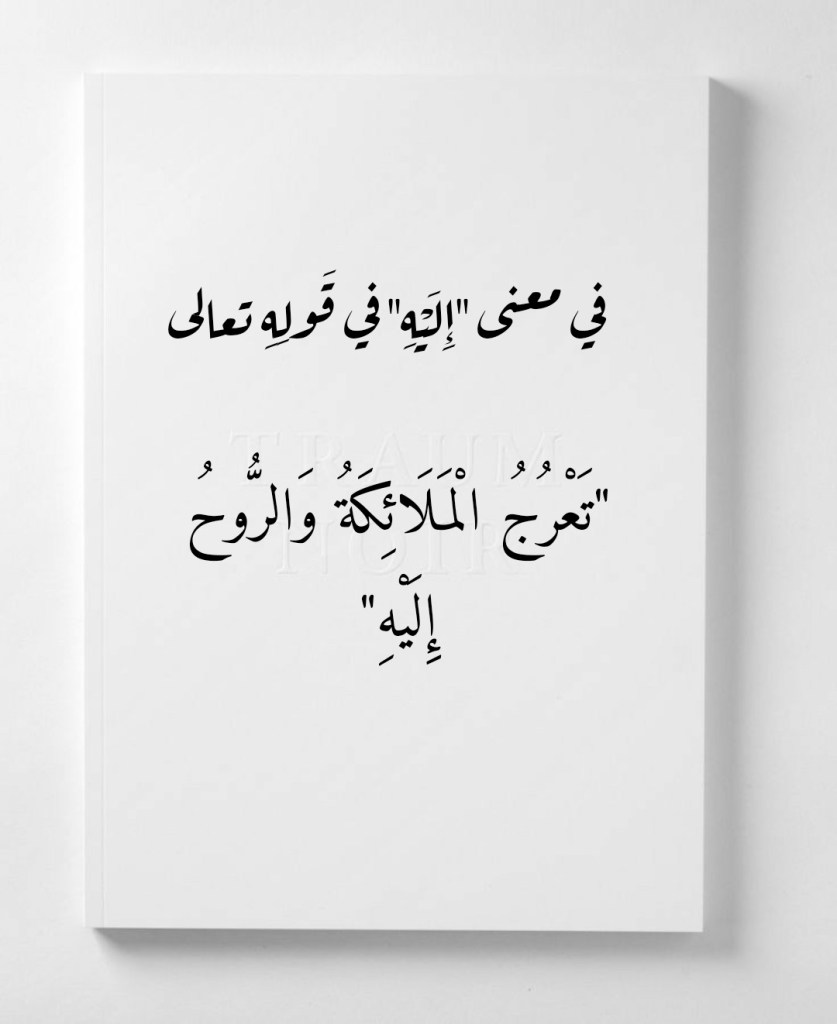 في معنى "إِلَيْهِ" في قَولِهِ تعالى
TRAUM
NOIR
"تَعْرُجُ الْمَلَائِكَةُ وَالرُّوحُ
إِلَيْهِ"